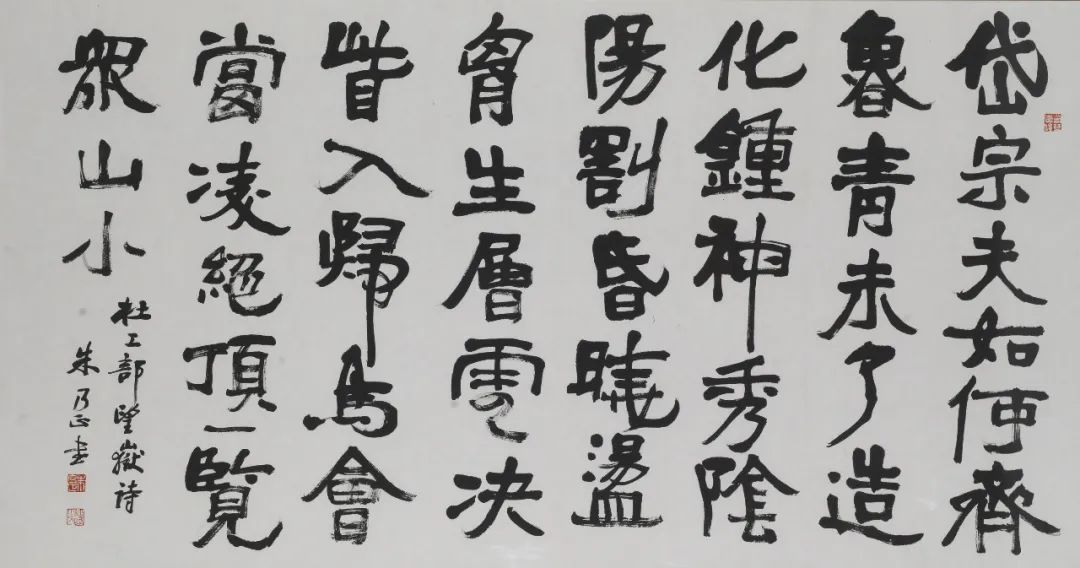 岱宗夫如何齊
魯青未了造
化鍾神秀陰
陽割昏曉盪
胷生層雲决
眥入歸鳥會
當凌絕頂一覽
眾山小
杜工部望嶽詩
朱乃正書